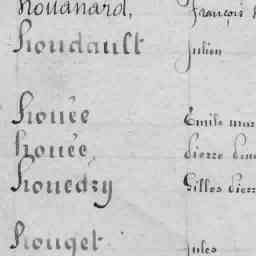 Houanard, François
Houdault Julien
Houée Emile
Houée Pierre
Houedry Gilles Pierre
Houget Jules